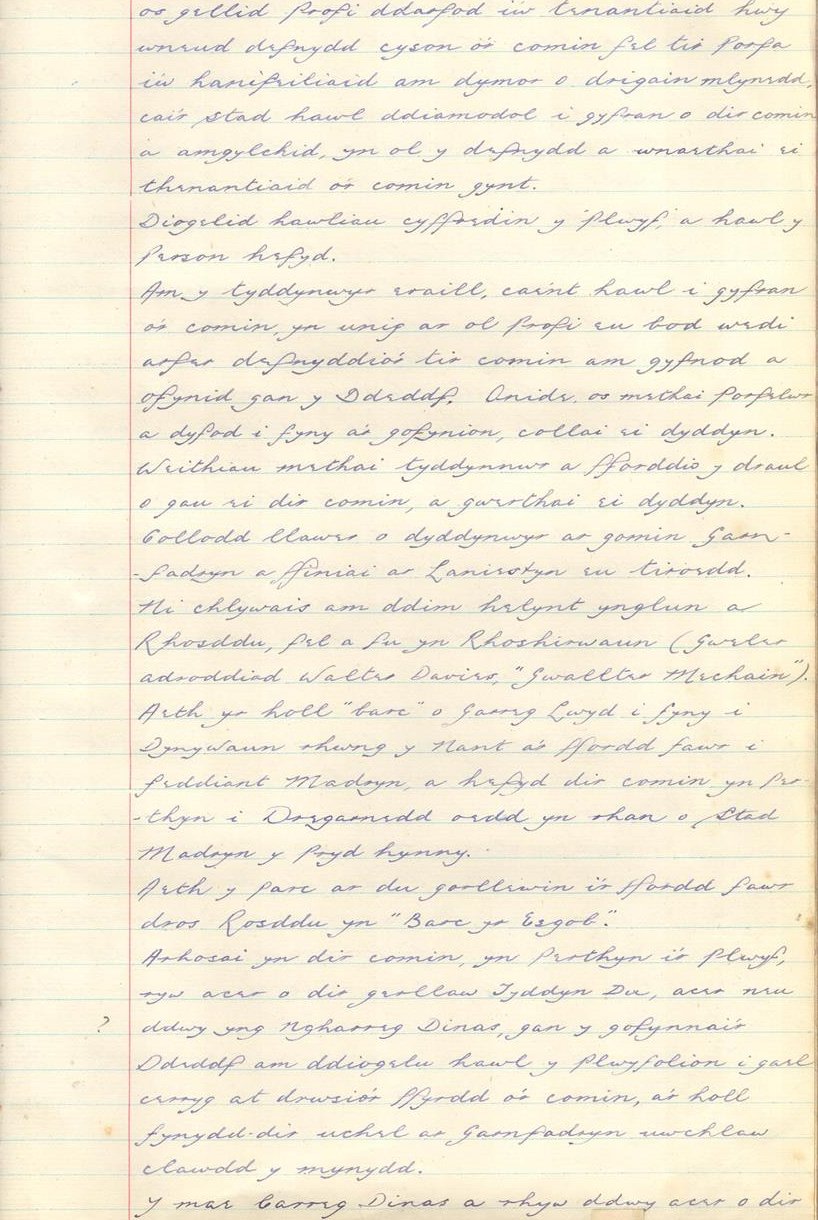 os gellid profi ddarfod i'w tenantiaid hwy
wneud defnydd cyson o'r comin fel tir porfa
i'w hanifeiliaid am dymor o drigain mlynedd,
cai'r stad hawl ddiamodol i gyfran o dir comin
a amgylchid, yn ol y defnydd a wnaethai ei
thenantiaid o'r comin gynt.
Diogelid hawliau cyffredin y plwyf, a hawl y
Person hefyd.
Am y tyddynwyr eraill, cae'nt hawl i gyfran
o'r comin, yn unig ar ol profi eu bod wedi
arfer defnyddio'r tir comin am gyfnod a
ofynid gan y Ddeddf. Onide, os methai porfelwr
a dyfod i fyny a'r gofynion, collai ei dyddyn.
Weithiau methai tyddynnwr a fforddio y draul
o gau ei dir comin, a gwerthai ei dyddyn.
Collodd llawer o dyddynwyr ar gomin Garn-
-fadryn a ffiniai ar Laniestyn eu tiroedd.
Ni chlywais am ddim helynt ynglun a
Rhosddu, fel a fu yn Rhoshirwaun (Gweler
adroddiad Walter Davies, "Gwallter Mechain").
Aeth yr holl "barc" o Garreg Lwyd i fyny i
Dynywaun rhwng y Nant a'r ffordd fawr i
feddiant Madryn, a hefyd dir comin yn per-
-thyn i Dregarnedd oedd yn rhan o Stad
Madryn y pryd hynny.
Aeth y parc ar du gorllewin i'r ffordd fawr
dros Rosddu yn "Barc yr Esgob".
Arhosai yn dir comin, yn perthyn i'r plwyf,
ryw acer o dir gerllaw Tyddyn Du, acer neu
? ddwy yng Ngharreg Dinas, gan y gofynnai'r
Ddeddf am ddiogelu hawl y plwyfolion i gael
cerryg at drwsio'r ffyrdd o'r comin, a'r holl
fynydd-dir uchel ar Garnfadryn uwchlaw
clawdd y mynydd.
Y mae Carreg Dinas a rhyw ddwy acer o dir